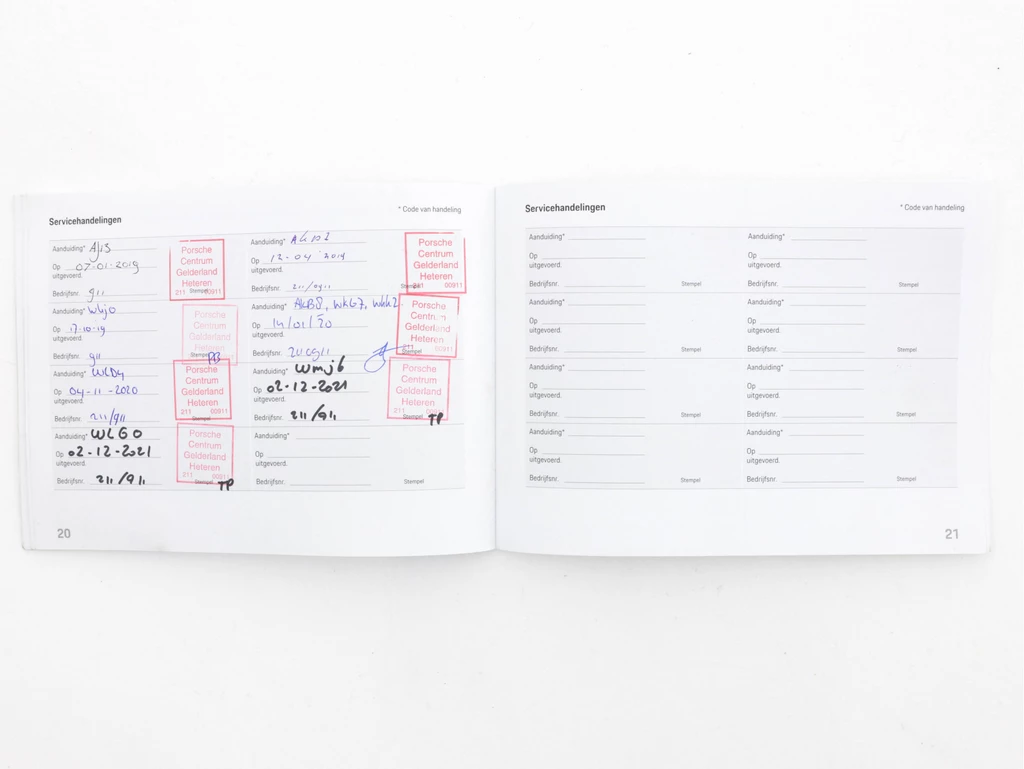 Servicehandelingen
* Code van handeling
Aanduiding* AJ13
Op 07-01-2019
uitgevoerd.
Bedrijfsnr. 911
Porsche
Centrum
Gelderland
Heteren
211 00911
Stempel
Aanduiding*
Op 12-04 2019
uitgevoerd.
Bedrijfsnr. 211/0911
Porsche
Centrum
Gelderland
Heteren
211 00911
Stempel
Aanduiding* WLJ0
Op 17-10-19
uitgevoerd.
Bedrijfsnr. 911
Porsche
Centrum
Gelderland
Heteren
Stempel
Aanduiding* AKB8, WKG7, WKH2
Op 14/01/20
uitgevoerd.
Bedrijfsnr. 2110911
Porsche
Centrum
Gelderland
Heteren
211 00911
Stempel
Aanduiding* WLD4
Op 04-11-2020
uitgevoerd.
Bedrijfsnr. 211/911
Porsche
Centrum
Gelderland
Heteren
211 00911
Stempel
Aanduiding* WMJ6
Op 02-12-2021
uitgevoerd.
Bedrijfsnr. 211/911
Porsche
Centrum
Gelderland
Heteren
211
Stempel
TP
Aanduiding* WLG0
Op 02-12-2021
uitgevoerd.
Bedrijfsnr. 211/911
Porsche
Centrum
Gelderland
Heteren
211 00911
Stempel
TP
Aanduiding*
Op
uitgevoerd.
Bedrijfsnr.
Stempel
20
Servicehandelingen
* Code van handeling
Aanduiding*
Op
uitgevoerd.
Bedrijfsnr.
Stempel
Aanduiding*
Op
uitgevoerd.
Bedrijfsnr.
Stempel
Aanduiding*
Op
uitgevoerd.
Bedrijfsnr.
Stempel
Aanduiding*
Op
uitgevoerd.
Bedrijfsnr.
Stempel
Aanduiding*
Op
uitgevoerd.
Bedrijfsnr.
Stempel
Aanduiding*
Op
uitgevoerd.
Bedrijfsnr.
Stempel
Aanduiding*
Op
uitgevoerd.
Bedrijfsnr.
Stempel
Aanduiding*
Op
uitgevoerd.
Bedrijfsnr.
Stempel
21